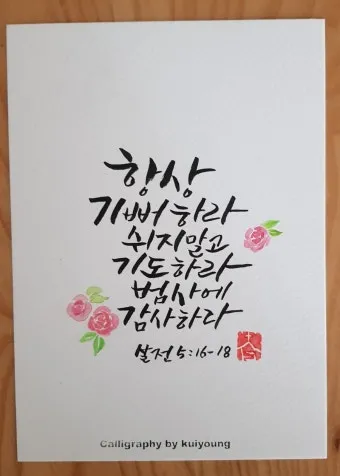 항상
기뻐하라
쉬지말고
기도하라
범사에
감사하라
살전 5:16-18
Calligraphy by kuiyoung